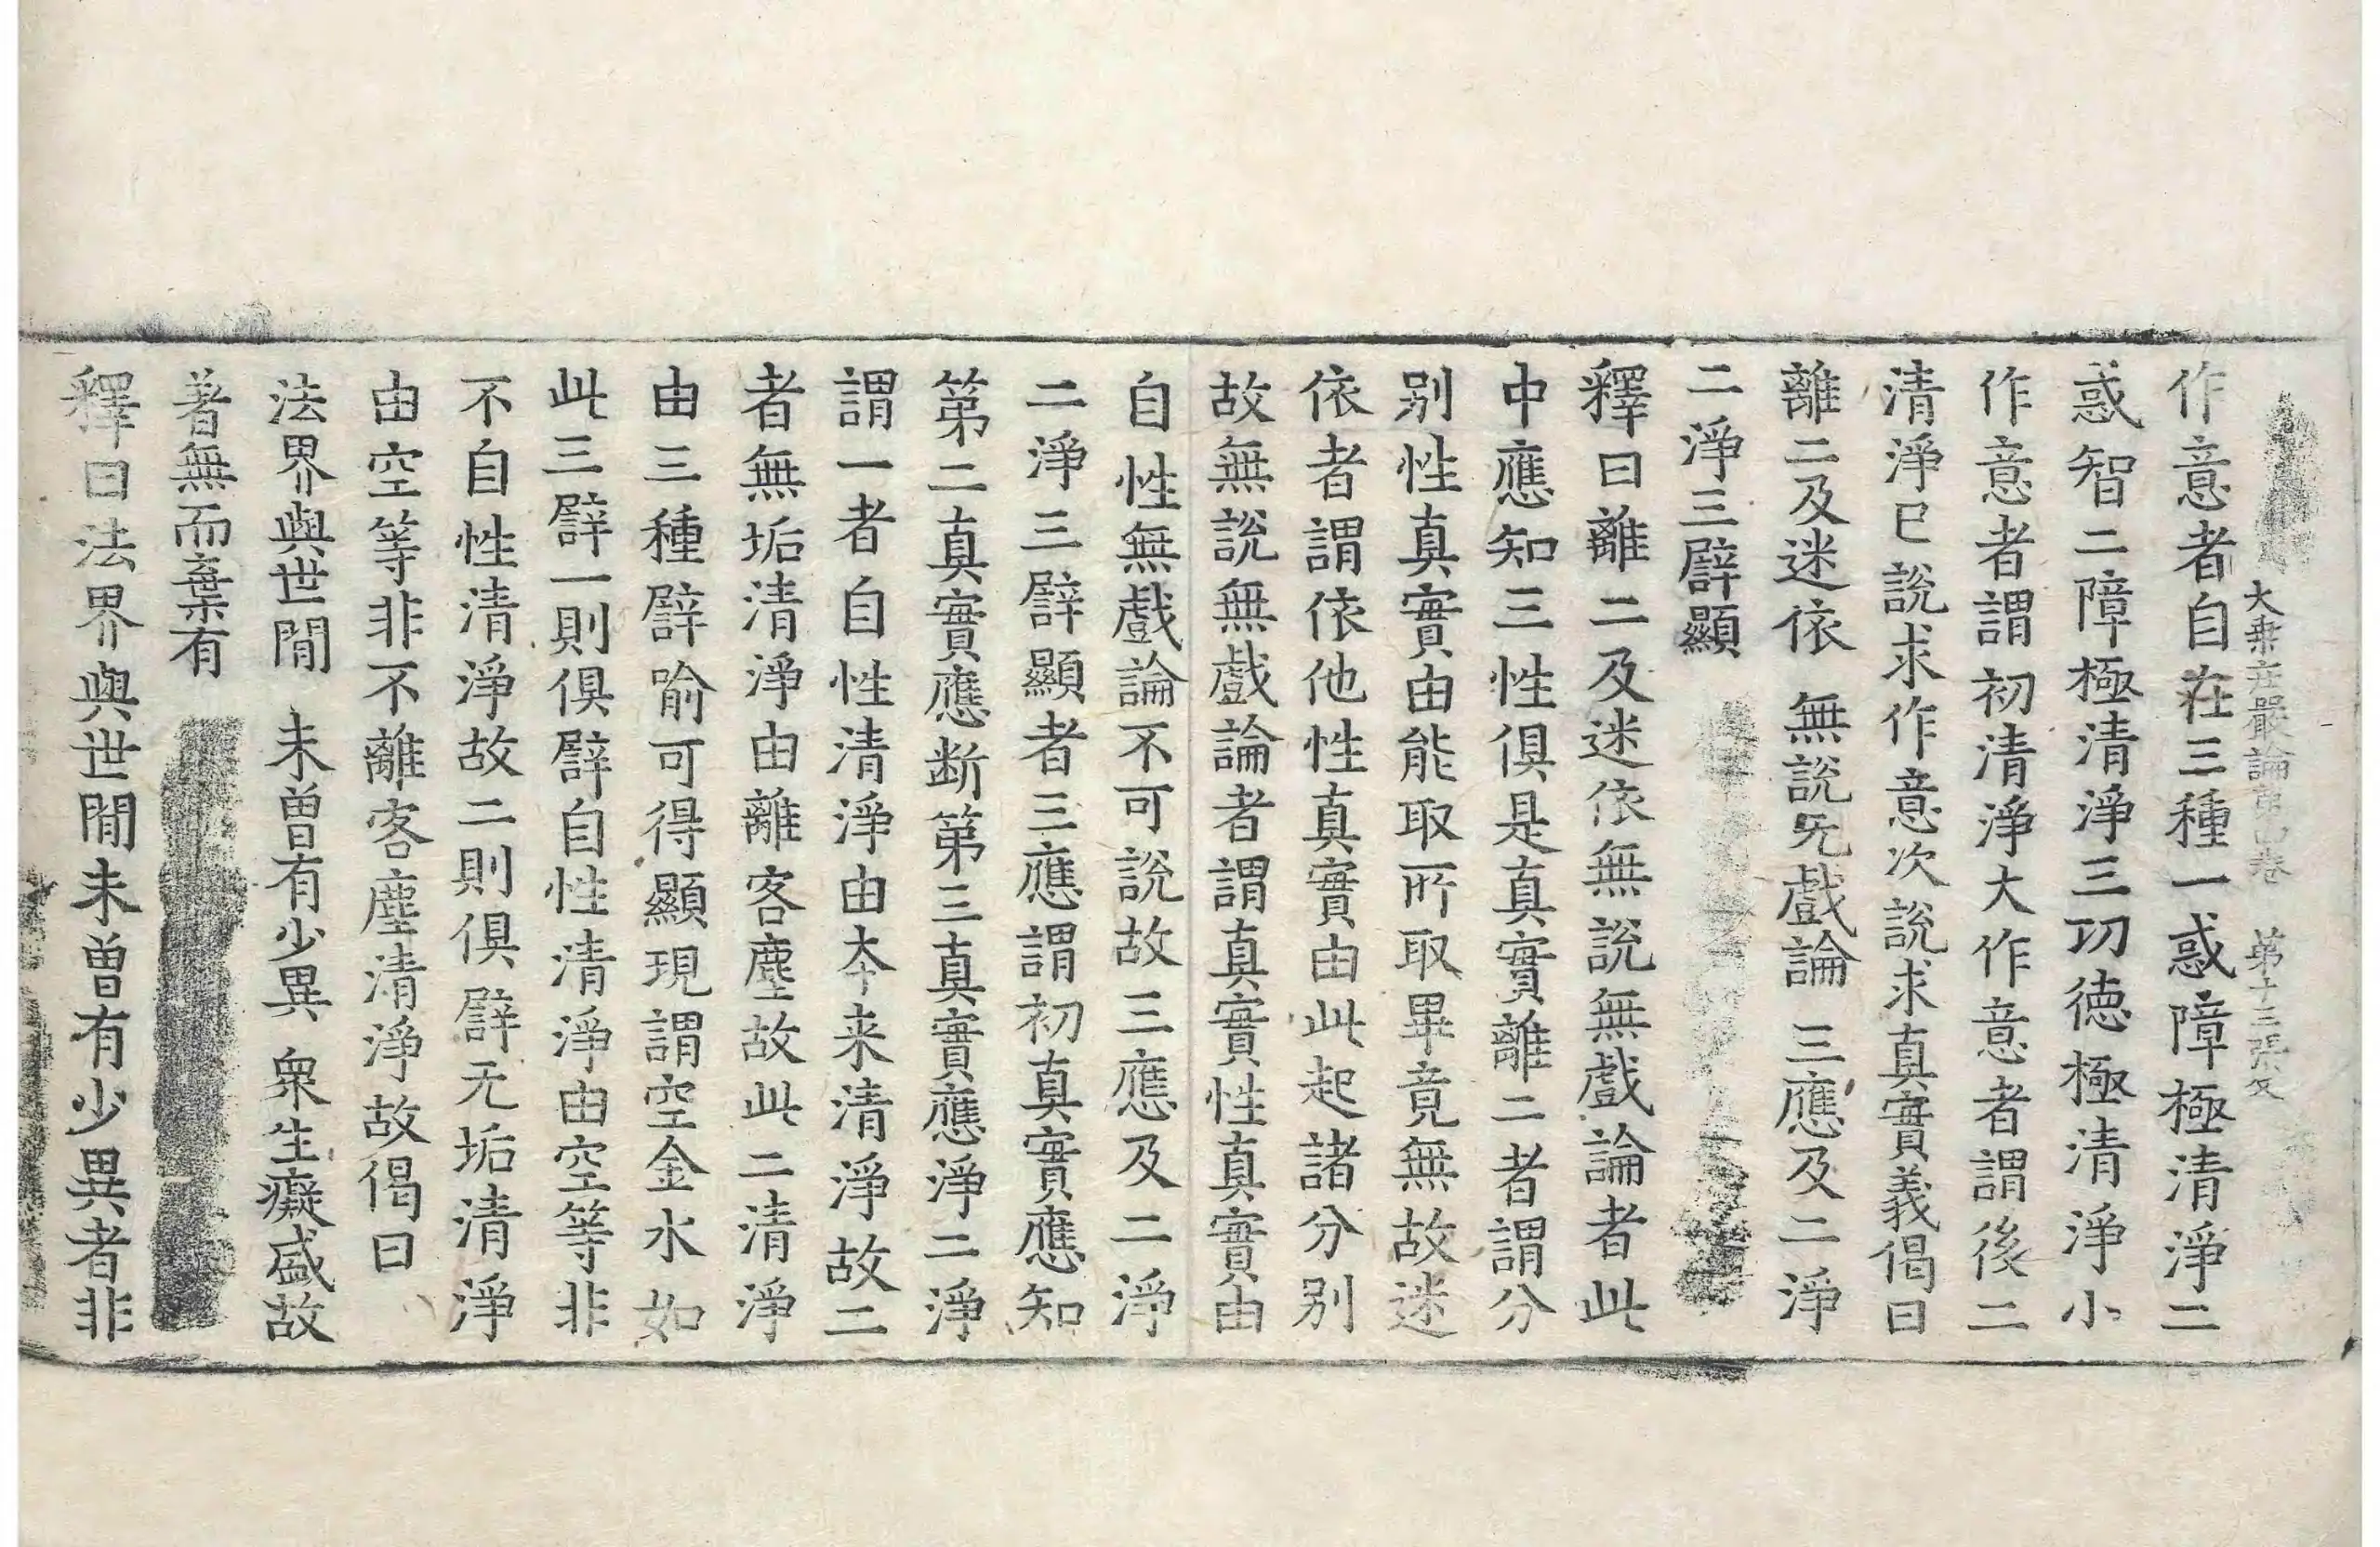 大乗庄嚴論第四卷 弟十三張欠
作意者自在三種一惑障極清淨二
惑智二障極清淨三㓛德極清淨小
作意者謂初清淨大作意者謂後二
清淨已說求作意次說求真實義偈曰
離二及迷依 無說旡戲論 三應及二淨
二淨三譬顯
釋曰離二及迷依無說無戲論者此
中應知三性俱是真實離二者謂分
别性真實由能取所取畢竟無故迷
依者謂依他性真實由此起諸分别
故無說無戲論者謂真實性真實由
自性無戲論不可說故三應及二淨
二淨三譬顯者三應謂初真實應知
第二真實應断第三真實應淨二淨
謂一者自性清淨由夲来清淨故二
者無垢清淨由離客塵故此二清淨
由三種譬喻可得顯現謂空金水如
此三譬一則俱譬自性清淨由空等非
不自性清淨故二則俱譬无垢清淨
由空等非不離客塵清淨故偈曰
法界與世間 未曾有少異 衆生癡盛故
著無而棄有
釋曰法界與世間未曾有少異者非